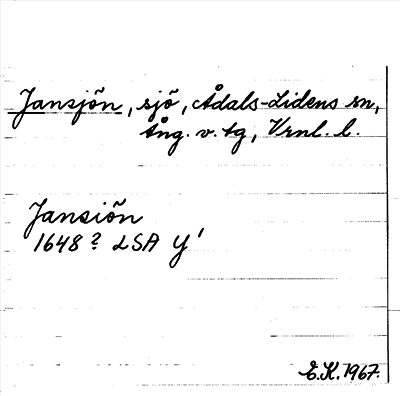 Jansjön, sjö, Ådals-Lidens sn,
Ång. v. tg, Vrnl. l.
Jansiön
1648? LSA Y'
E.K. 1967.